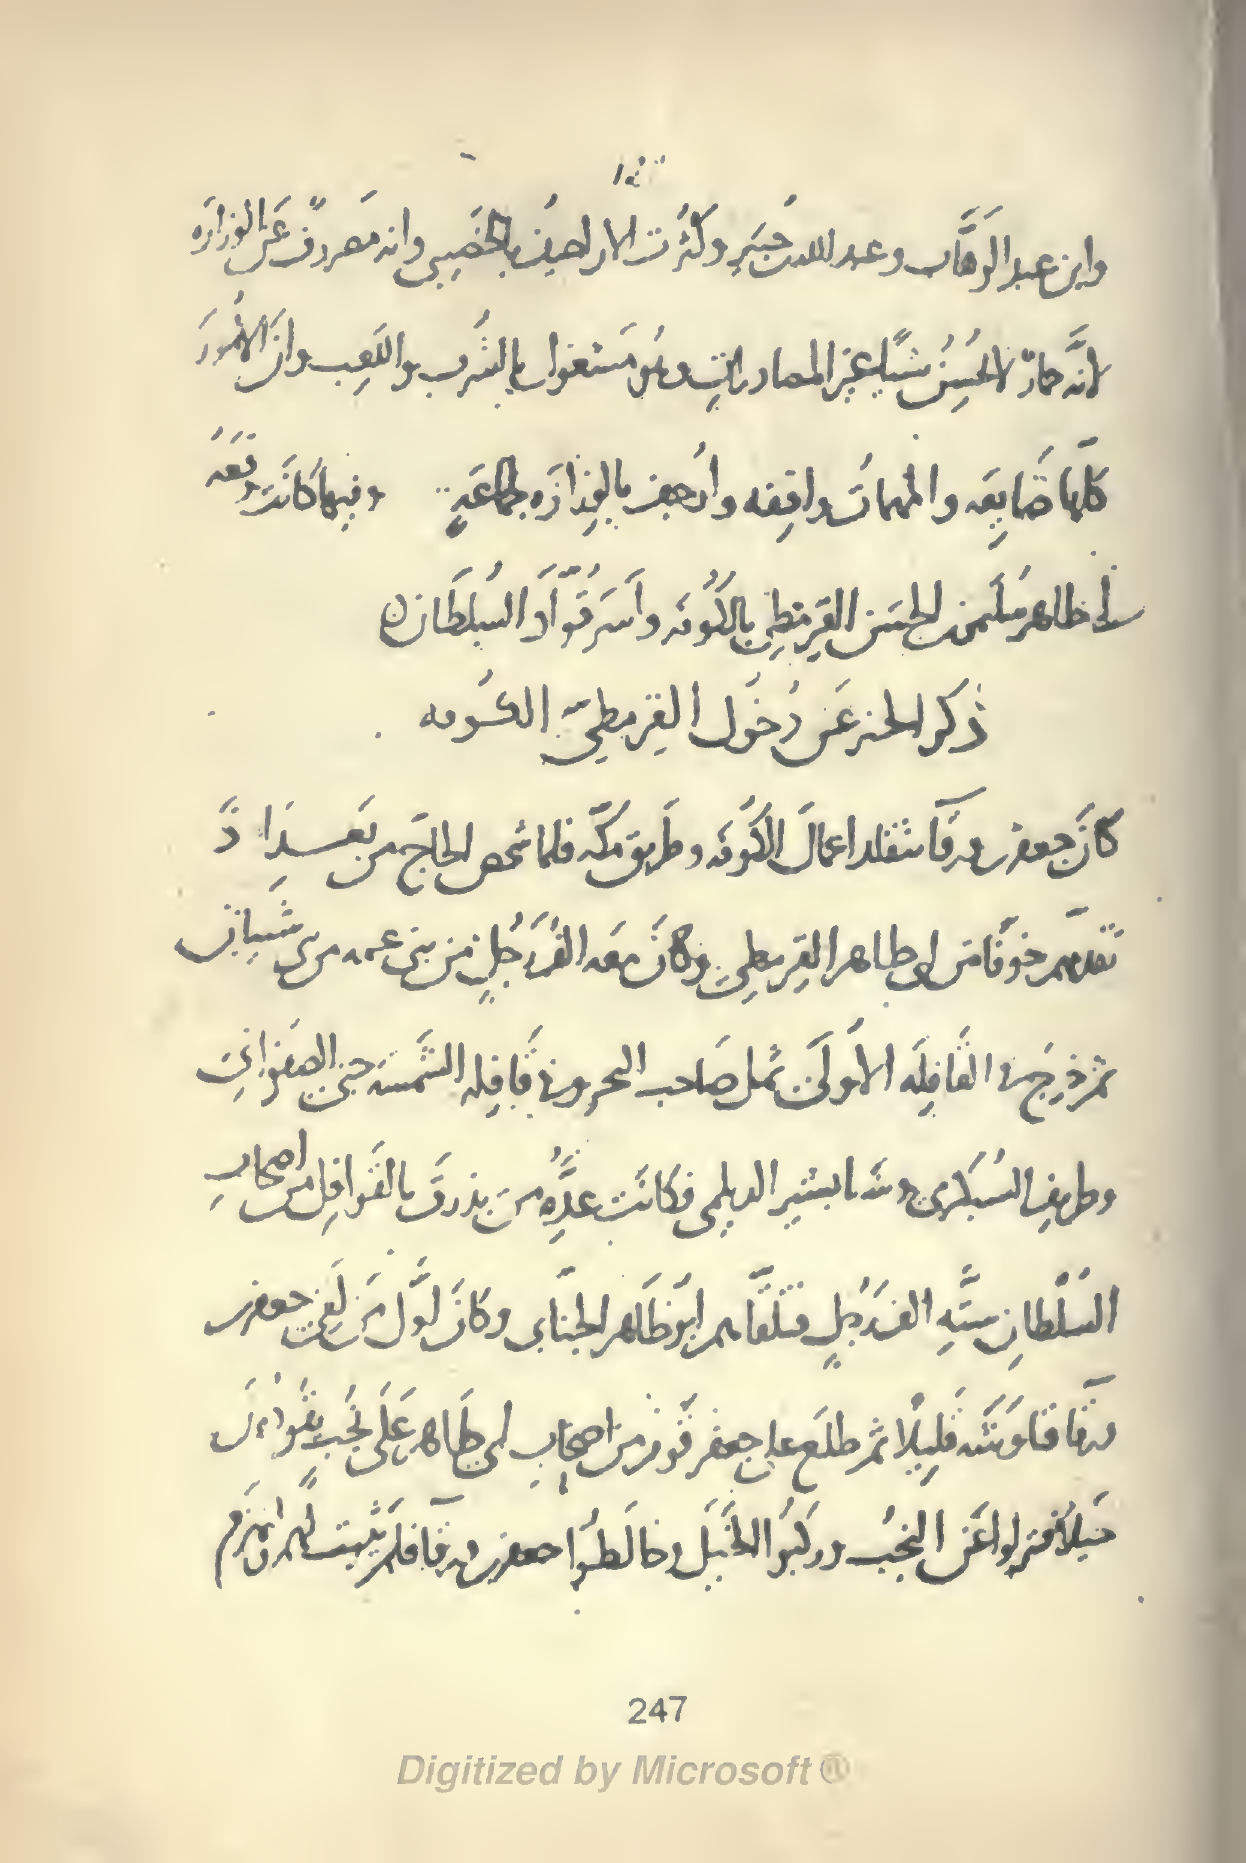 وابن عبد الوهَّاب وعبد الله بن جُبَيرٍ وكثُرَت الاراجيف بالخَصِيبى وانه مَصروفٌ عَن الوزارَه
لانَّه كان لا يُحسِنُ شيًا غير المصادرات وهُو مَشغول بالشُرب واللَعِب وانَّ الأمُورَ
كلّها ضَايِعَه والمهمات واقِفه وارُجِف بالوِزارَه لجماعَةٍ وفيها كانَت وقعَه
ابى طاهر سُليمن بن الحسَن القِرمطِىّ بالكُوفه وأسَرَ قُوّادَ السُلطَان
ذكر الخبر عَن دُخُول القِرمطِىّ الكُوفه
كانَ جعفر بن ورقآ يتقلد اعمالَ الكُوفَه وطَريق مكّه فلما شخص الحاجّ من بَغداذَ
تقدّمهم خوفًا من ابى طاهر القِرمطِىّ وكانَ معَه الفُ رَجُلٍ من بنى عمه من بنى شَيبان
ثم خرَجَ فى القافِلَه الأولَى ثمل صَاحب البحر وفى قافِله الشَّمسَه جنى الصَفوانِىّ
وطريف السُبكرىّ وشَابشير الديلمى فكانَت عدّه من بذرَقَ بالقَوافِل من اصحاب
السُلطان ستَّه الف رَجُلٍ فتلقّاهم ابُو طَاهر الجَنَّابى وكانَ اوّل مَن لَقِى جعفر بن
ورقآ فناوشَهُ قليلًا ثم طلَع على جعفر قومٌ من اصحاب ابى طاهر عَلى نُجُب يقُودُونَ
خيلًا فنزلوا عَن النجُب وركبُوا الخَيل وخالطُوا جعفر بن ورقآ فلم يَثبت لهم وانهزَم
247
Digitized by Microsoft ®